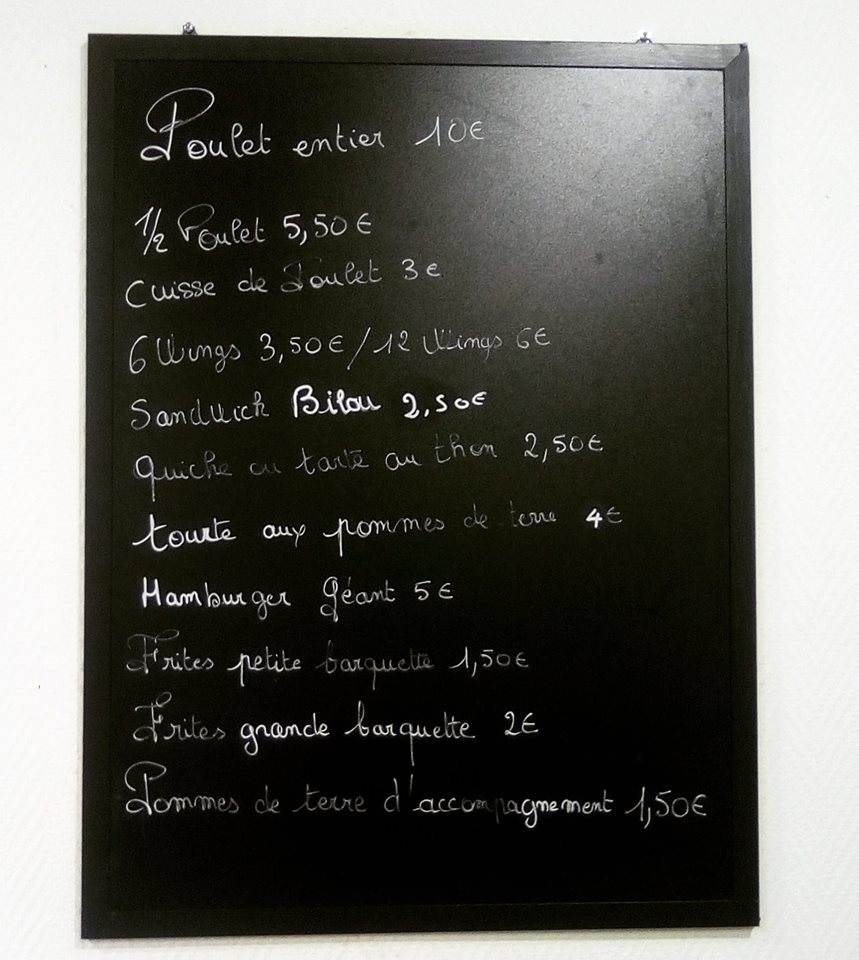 Poulet entier 10€
1/2 Poulet 5,50€
Cuisse de Poulet 3€
6 Wings 3,50€/12 Wings 6€
Sandwich Bilou 2,50€
Quiche ou tarte au thon 2,50€
tourte aux pommes de terre 4€
Hamburger Géant 5€
Frites petite barquette 1,50€
Frites grande barquette 2€
Pommes de terre d'accompagnement 1,50€